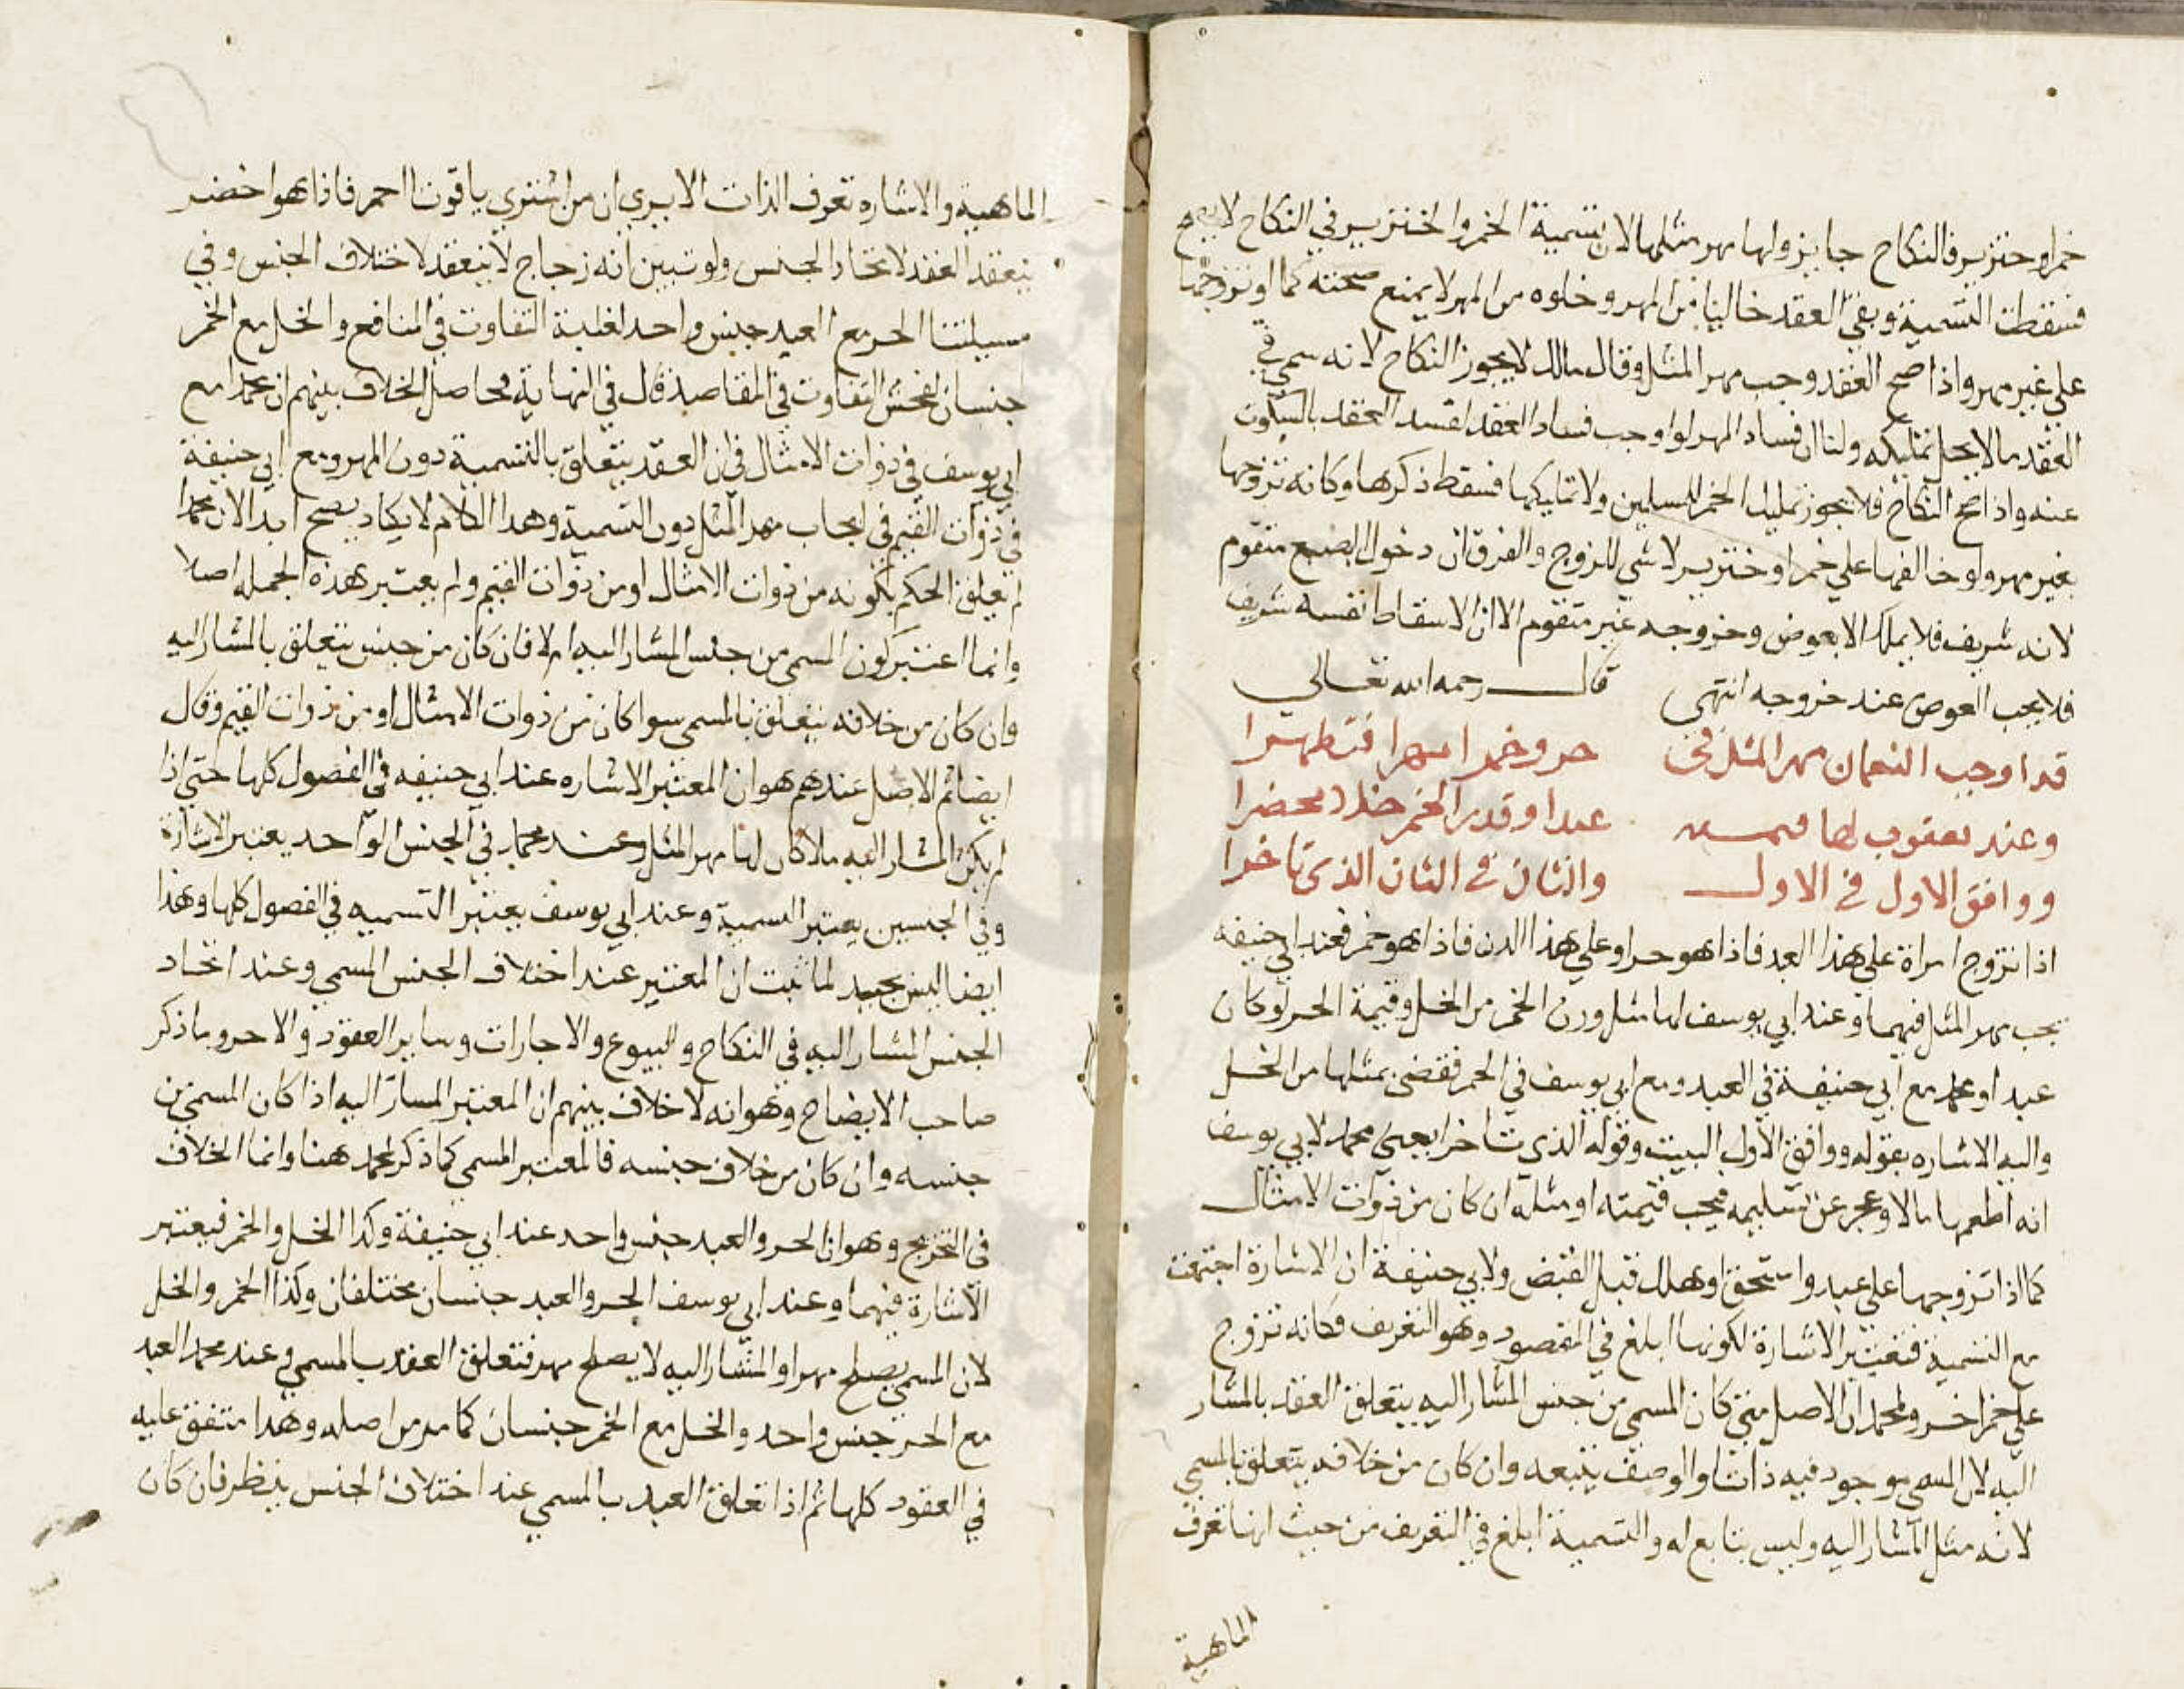 خمر او خنزير فالنكاح جايز ولها مهر مثلها لان تسمية الخمر والخنزير في النكاح لا يصح
فسقطت التسمية وبقى العقد خاليا من المهر وخلوه من المهر لا يمنع صحته كما لو تزوجها
على غير مهر واذا صح العقد وجب مهر المثل وقال مالك لا يجوز النكاح لانه سمى في
العقد ما لا يحل تمليكه ولنا ان فساد المهر لو اوجب فساد العقد لفسد العقد بالسكوت
عنه واذا صح النكاح فلا يجوز تمليك الخمر للمسلمين ولا تمليكها فسقط ذكرها وكانه تزوجها
بغير مهر ولو خالفها علي خمر او خنزير لا شي للزوج والفرق ان دخول البضع متقوم
لانه شريف فلا يملك الا بعوض وخروجه غير متقوم الا ان الاسقاط نفسه شريف
فلا يجب العوض عند خروجه انتهى قال رحمه الله تعالي
قد اوجب النعمان مهر المثل في حر وخمر امهرا فتطهرا
وعند يعقوب لها قيمته عبدا وقدر الخمر خلا محضرا
ووافق الاول في الاول والثان في الثان الذي تاخرا
اذا تزوج امراة علي هذا العبد فاذا هو حر او علي هذا الدن فاذا هو خمر فعند ابي حنيفه
يجب مهر المثل فيهما وعند ابي يوسف لها مثل وزن الخمر من الخل وقيمة الحر لو كان
عبدا ومحمد مع ابي حنيفة في العبد ومع ابي يوسف في الخمر فقضى بمثلها من الخل
واليه الاشاره بقوله ووافق الاول البيت وقوله الذي تاخرا يعنى محمد لابي يوسف
انه اطعمها مالا وعجز عن تسليمه فيجب قيمته او مثله ان كان من ذوات الامثال
كما اذا تزوجها علي عبد واستحق او هلك قبل القبض ولابي حنيفة ان الاشارة اجتمعت
مع التسمية فتعتبر الاشارة لكونها ابلغ في المقصود وهو التعريف فكانه تزوج
علي خمر او حر ولمحمد ان الاصل متى كان المسمى من جنس المشار اليه يتعلق العقد بالمشار
اليه لان المسمى موجود فيه ذاتا والوصف يتبعه وان كان من خلافه يتعلق بالمسمي
لانه مثل المشار اليه وليس بتابع له والتسمية ابلغ في التعريف من حيث انها تعرف
الماهية
الماهية والاشاره تعرف الذات الا يري ان من اشتري ياقوتا احمر فاذا هو اخضر
ينعقد العقد لاتحاد الجنس ولو تبين انه زجاج لا ينعقد لاختلاف الجنس وفي
مسيلتنا الحر مع العبد جنس واحد لغلبة التفاوت في المنافع والخل مع الخمر
جنسان لفحش التفاوت في المقاصد قال في النهاية محاصل الخلاف بينهم ان محمدا مع
ابي يوسف في ذوات الامثال في ان العقد يتعلق بالتسمية دون المهر ومع ابي حنيفة
في ذوات القيم في ايجاب مهر المثل دون التسمية وهذا الكلام لا يكاد يصح ابدا لان محمدا
لم يعلق الحكم بكونه من ذوات الامثال او من ذوات القيم ولم يعتبر هذه الجمله اصلا
وانما اعتبر كون المسمى من جنس المشار اليه ام لا فان كان من جنس يتعلق بالمشار اليه
وان كان من خلافه يتعلق بالمسمي سوا كان من ذوات الامثال او من ذوات القيم وقال
ايضا ثم الاصل عندهم هو ان المعتبر الاشاره عند ابي حنيفه في الفصول كلها حتي اذا
لم يكن المشار اليه مالا كان لها مهر المثل وعند محمد في الجنس الواحد يعتبر الاشارة
وفي الجنسين يعتبر التسمية وعند ابي يوسف يعتبر التسميه في الفصول كلها وهذا
ايضا ليس بجيد لما ثبت ان المعتبر عند اختلاف الجنس المسمي وعند اتحاد
الجنس المشار اليه في النكاح والبيوع والاجارات وساير العقود والاحر وما ذكر
صاحب الايضاح وهو انه لا خلاف بينهم ان المعتبر المشار اليه اذا كان المسمى من
جنسه وان كان من خلاف جنسه فالمعتبر المسمي كما ذكر لمحمد هنا وانما الخلاف
في التخريج وهو ان الحر والعبد جنس واحد عند ابي حنيفة وكذا الخل والخمر فيعتبر
الاشارة فيهما وعند ابي يوسف الحر والعبد جنسان مختلفان وكذا الخمر والخل
لان المسمى يصلح مهرا والمشار اليه لا يصلح مهر فتعلق العقد بالمسمي وعند محمد العبد
مع الحر جنس واحد والخل مع الخمر جنسان كما مر من اصله وهذا متفق عليه
في العقود كلها ثم اذا تعلق العبد بالمسمي عند اختلاف الجنس ينظر فان كان